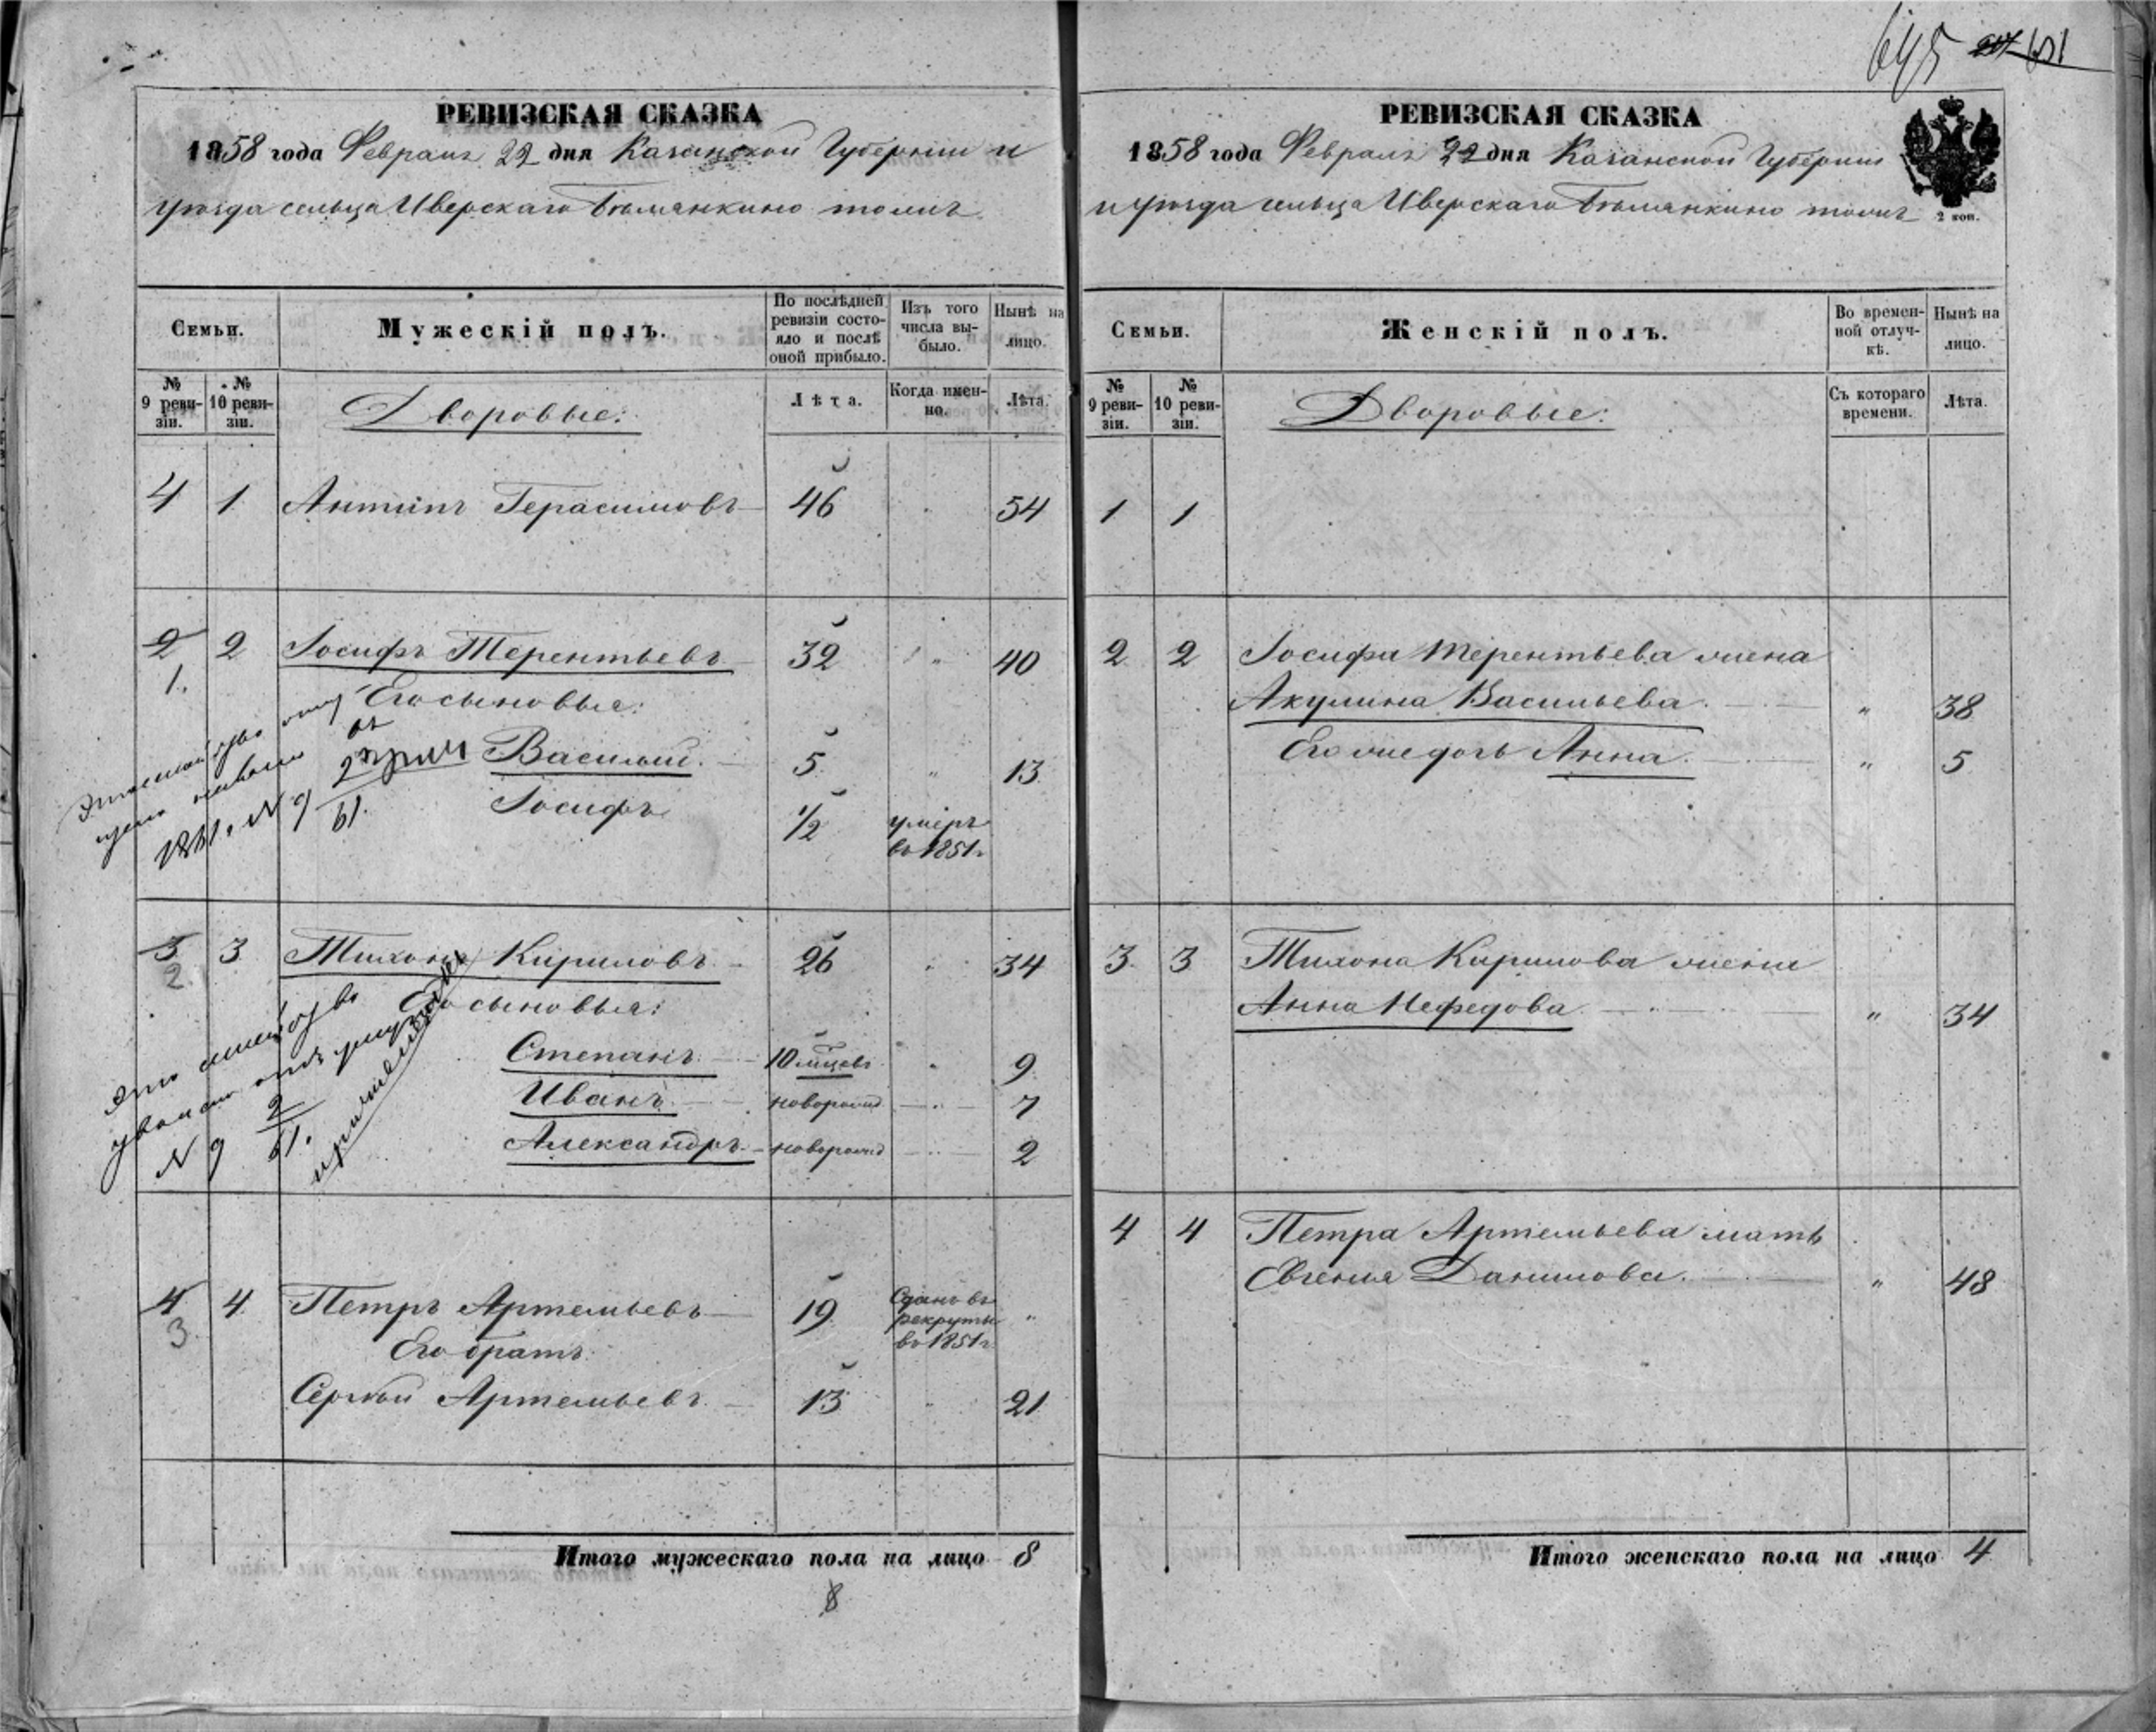 645
РЕВИЗСКАЯ СКАЗКА
1858 года Февраля 22 дня Казанской Губерніи и
уѣзда сельца Иверскаго Бѣлянкино тожъ.
Семьи.
Мужескій полъ.
По послѣдней ревизіи состояло и послѣ оной прибыло.
Изъ того числа выбыло.
Нынѣ на лицо.
№ 9 ревизіи.
№ 10 ревизіи.
Дворовые:
Лѣта.
Когда именно.
Лѣта.
4 1 Антипъ Герасимовъ 46 54
2 2 Іосифъ Терентьевъ 32 „ 40
1.
Его сыновья:
Василій. 5 „ 13
Іосифъ 1/2 умеръ
въ 1851г.
1861. № 9 61.
3 3 Тихонъ Кириловъ 26 34
2.
Его сыновья:
Степанъ 10 мѣсцовъ 9
Иванъ новорожд 7
Александръ новорожд 2
Это
№ 9 2 61.
4 4 Петръ Артемьевъ 19 Сданъ въ
рекруты
въ 1851г.
„
3.
Его братъ
Сергѣй Артемьевъ 13 21
Итого мужескаго пола на лицо 8
8
РЕВИЗСКАЯ СКАЗКА
1858 года Февраля 22 дня Казанской Губерніи
и уѣзда сельца Иверскаго Бѣлянкино тожъ
2 коп.
Семьи.
Женскій полъ.
Во временной отлучкѣ.
Нынѣ на лицо.
№ 9 ревизіи.
№ 10 ревизіи.
Дворовые:
Съ котораго времени.
Лѣта.
1 1
2 2 Іосифа Терентьева жена
Акулина Васильева „ 38
Его же дочь Анна „ 5
3 3 Тихона Кирилова жена
Анна Нефедова „ 34
4 4 Петра Артемьева мать
Евгенія Данилова. „ 48
Итого женскаго пола на лицо 4